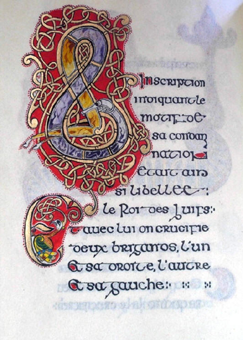 & Inscription
indiquant le
motif de
sa condam
nation
était ain
si libellée :
le Roi des Juifs :
avec lui on crucifie
deux brigands, l'un
à sa droite, l'autre
à sa gauche :